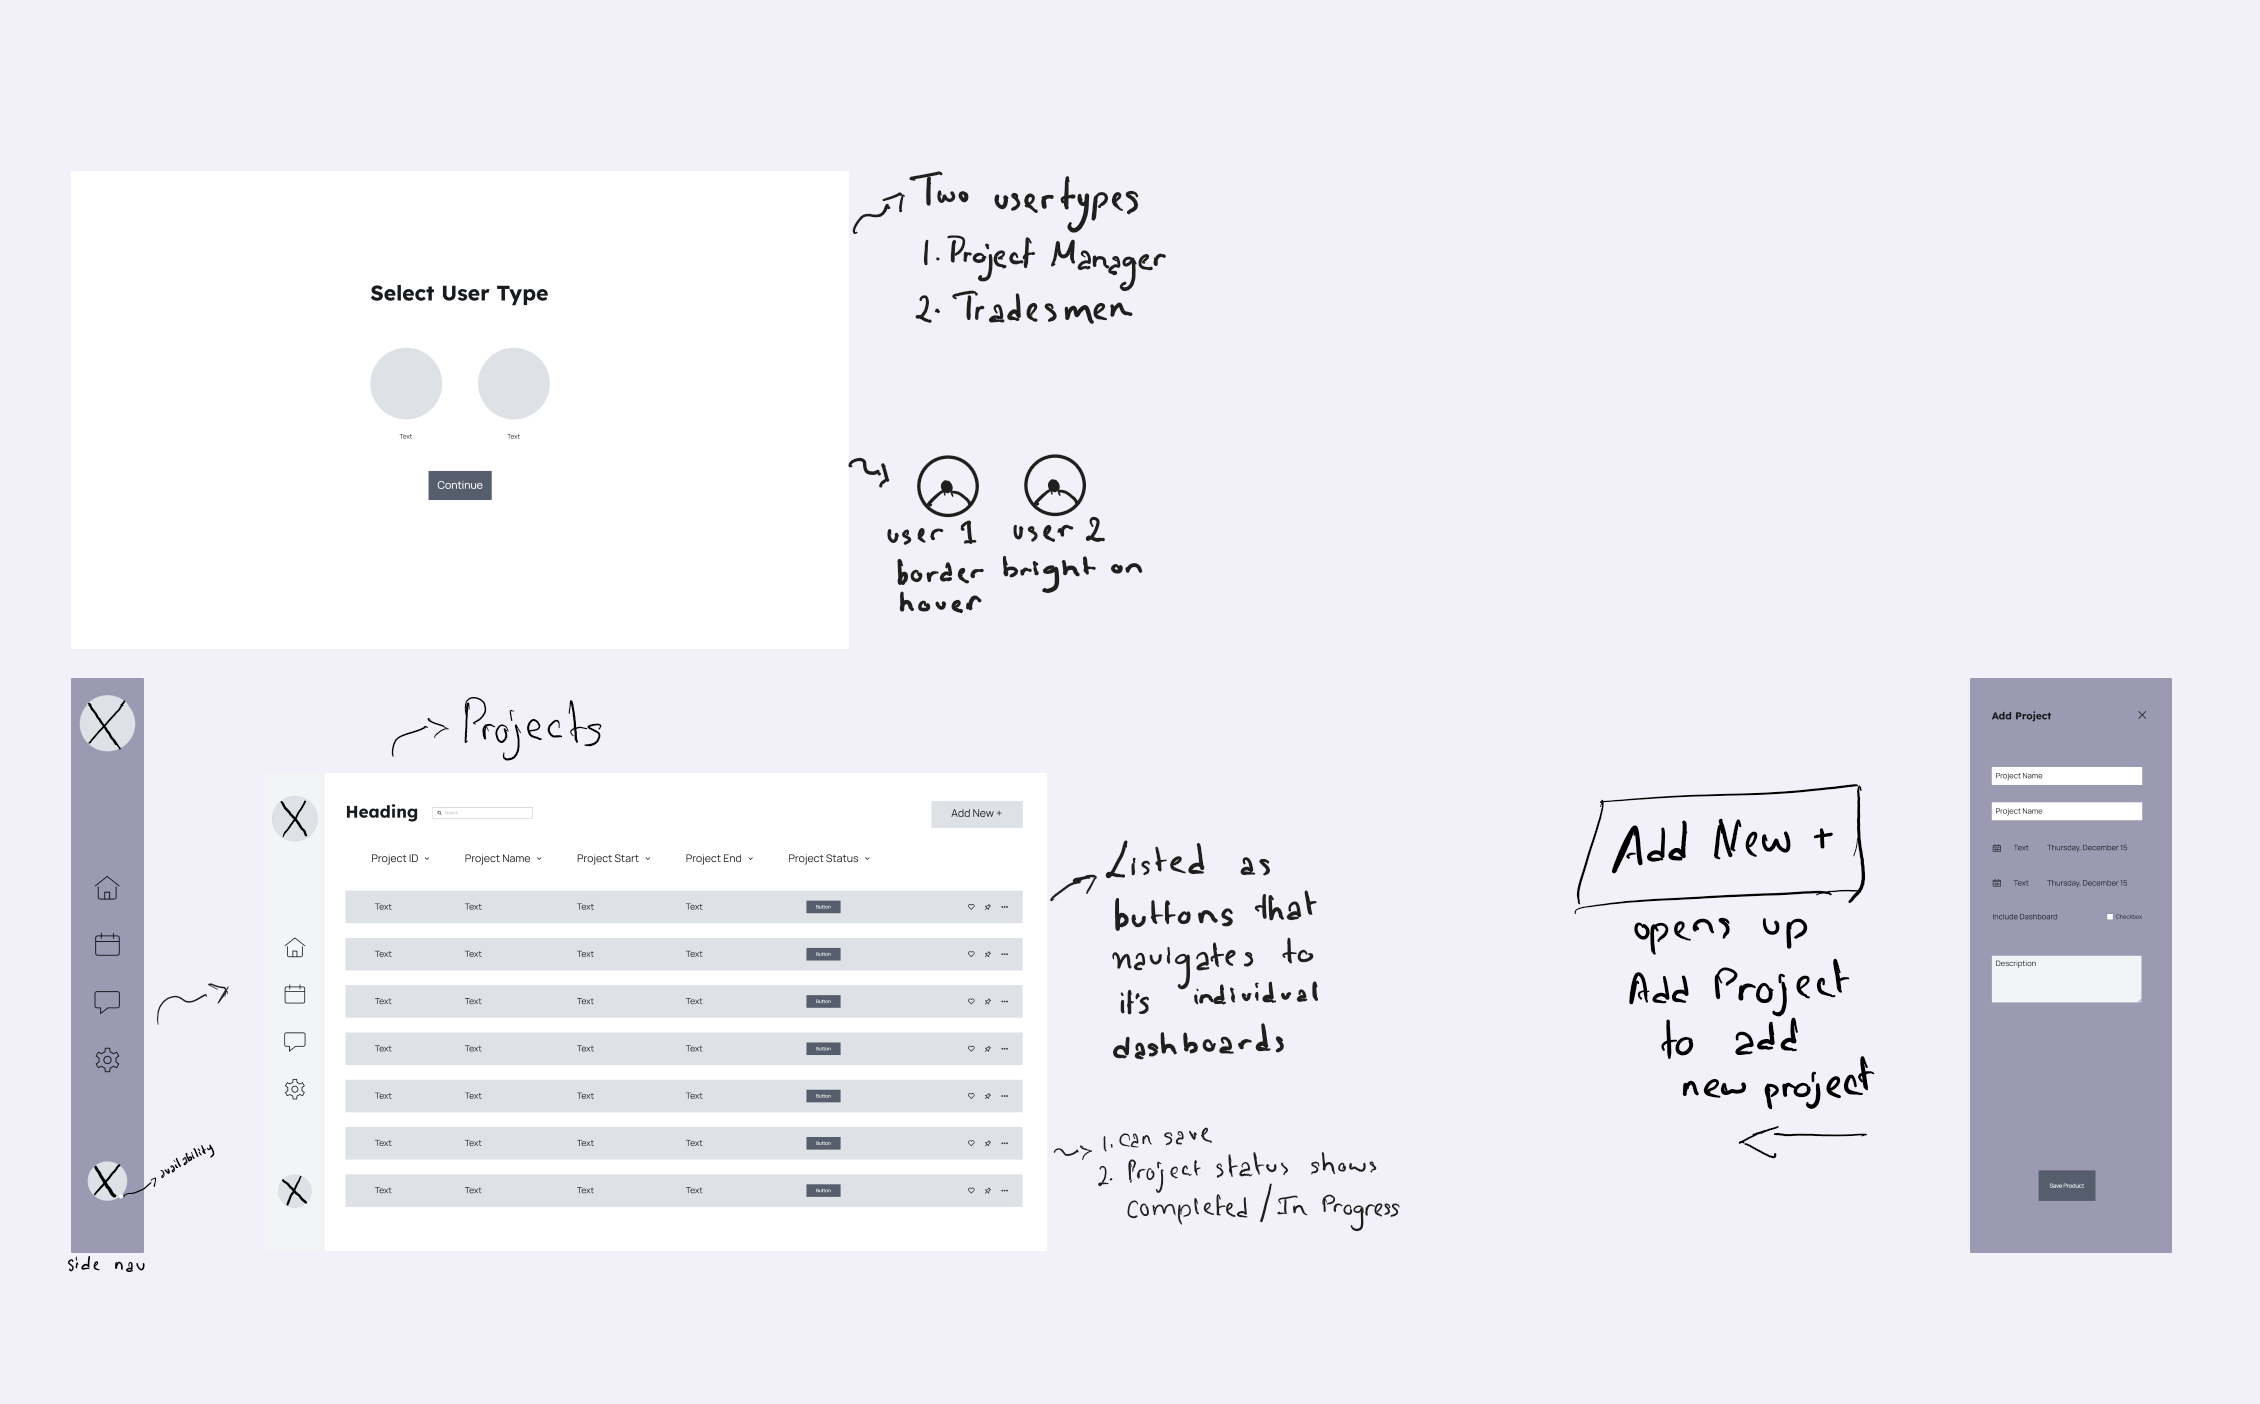 Select User Type
Text
Text
Continue
Two usertypes
1. Project Manager
2. Tradesmen
user 1 user 2
border bright on
hover
availability
side nav
Projects
Heading
Search
Add New +
Project ID
Project Name
Project Start
Project End
Project Status
Text Text Text Text Button
Text Text Text Text Button
Text Text Text Text Button
Text Text Text Text Button
Text Text Text Text Button
Text Text Text Text Button
Text Text Text Text Button
Listed as
buttons that
navigates to
it's individual
dashboards
1. Can save
2. Project status shows
Completed / In Progress
Add New +
opens up
Add Project
to add
new project
Add Project
Project Name
Project Name
Text Thursday, December 15
Text Thursday, December 15
Include Dashboard Checkbox
Description
Save Product